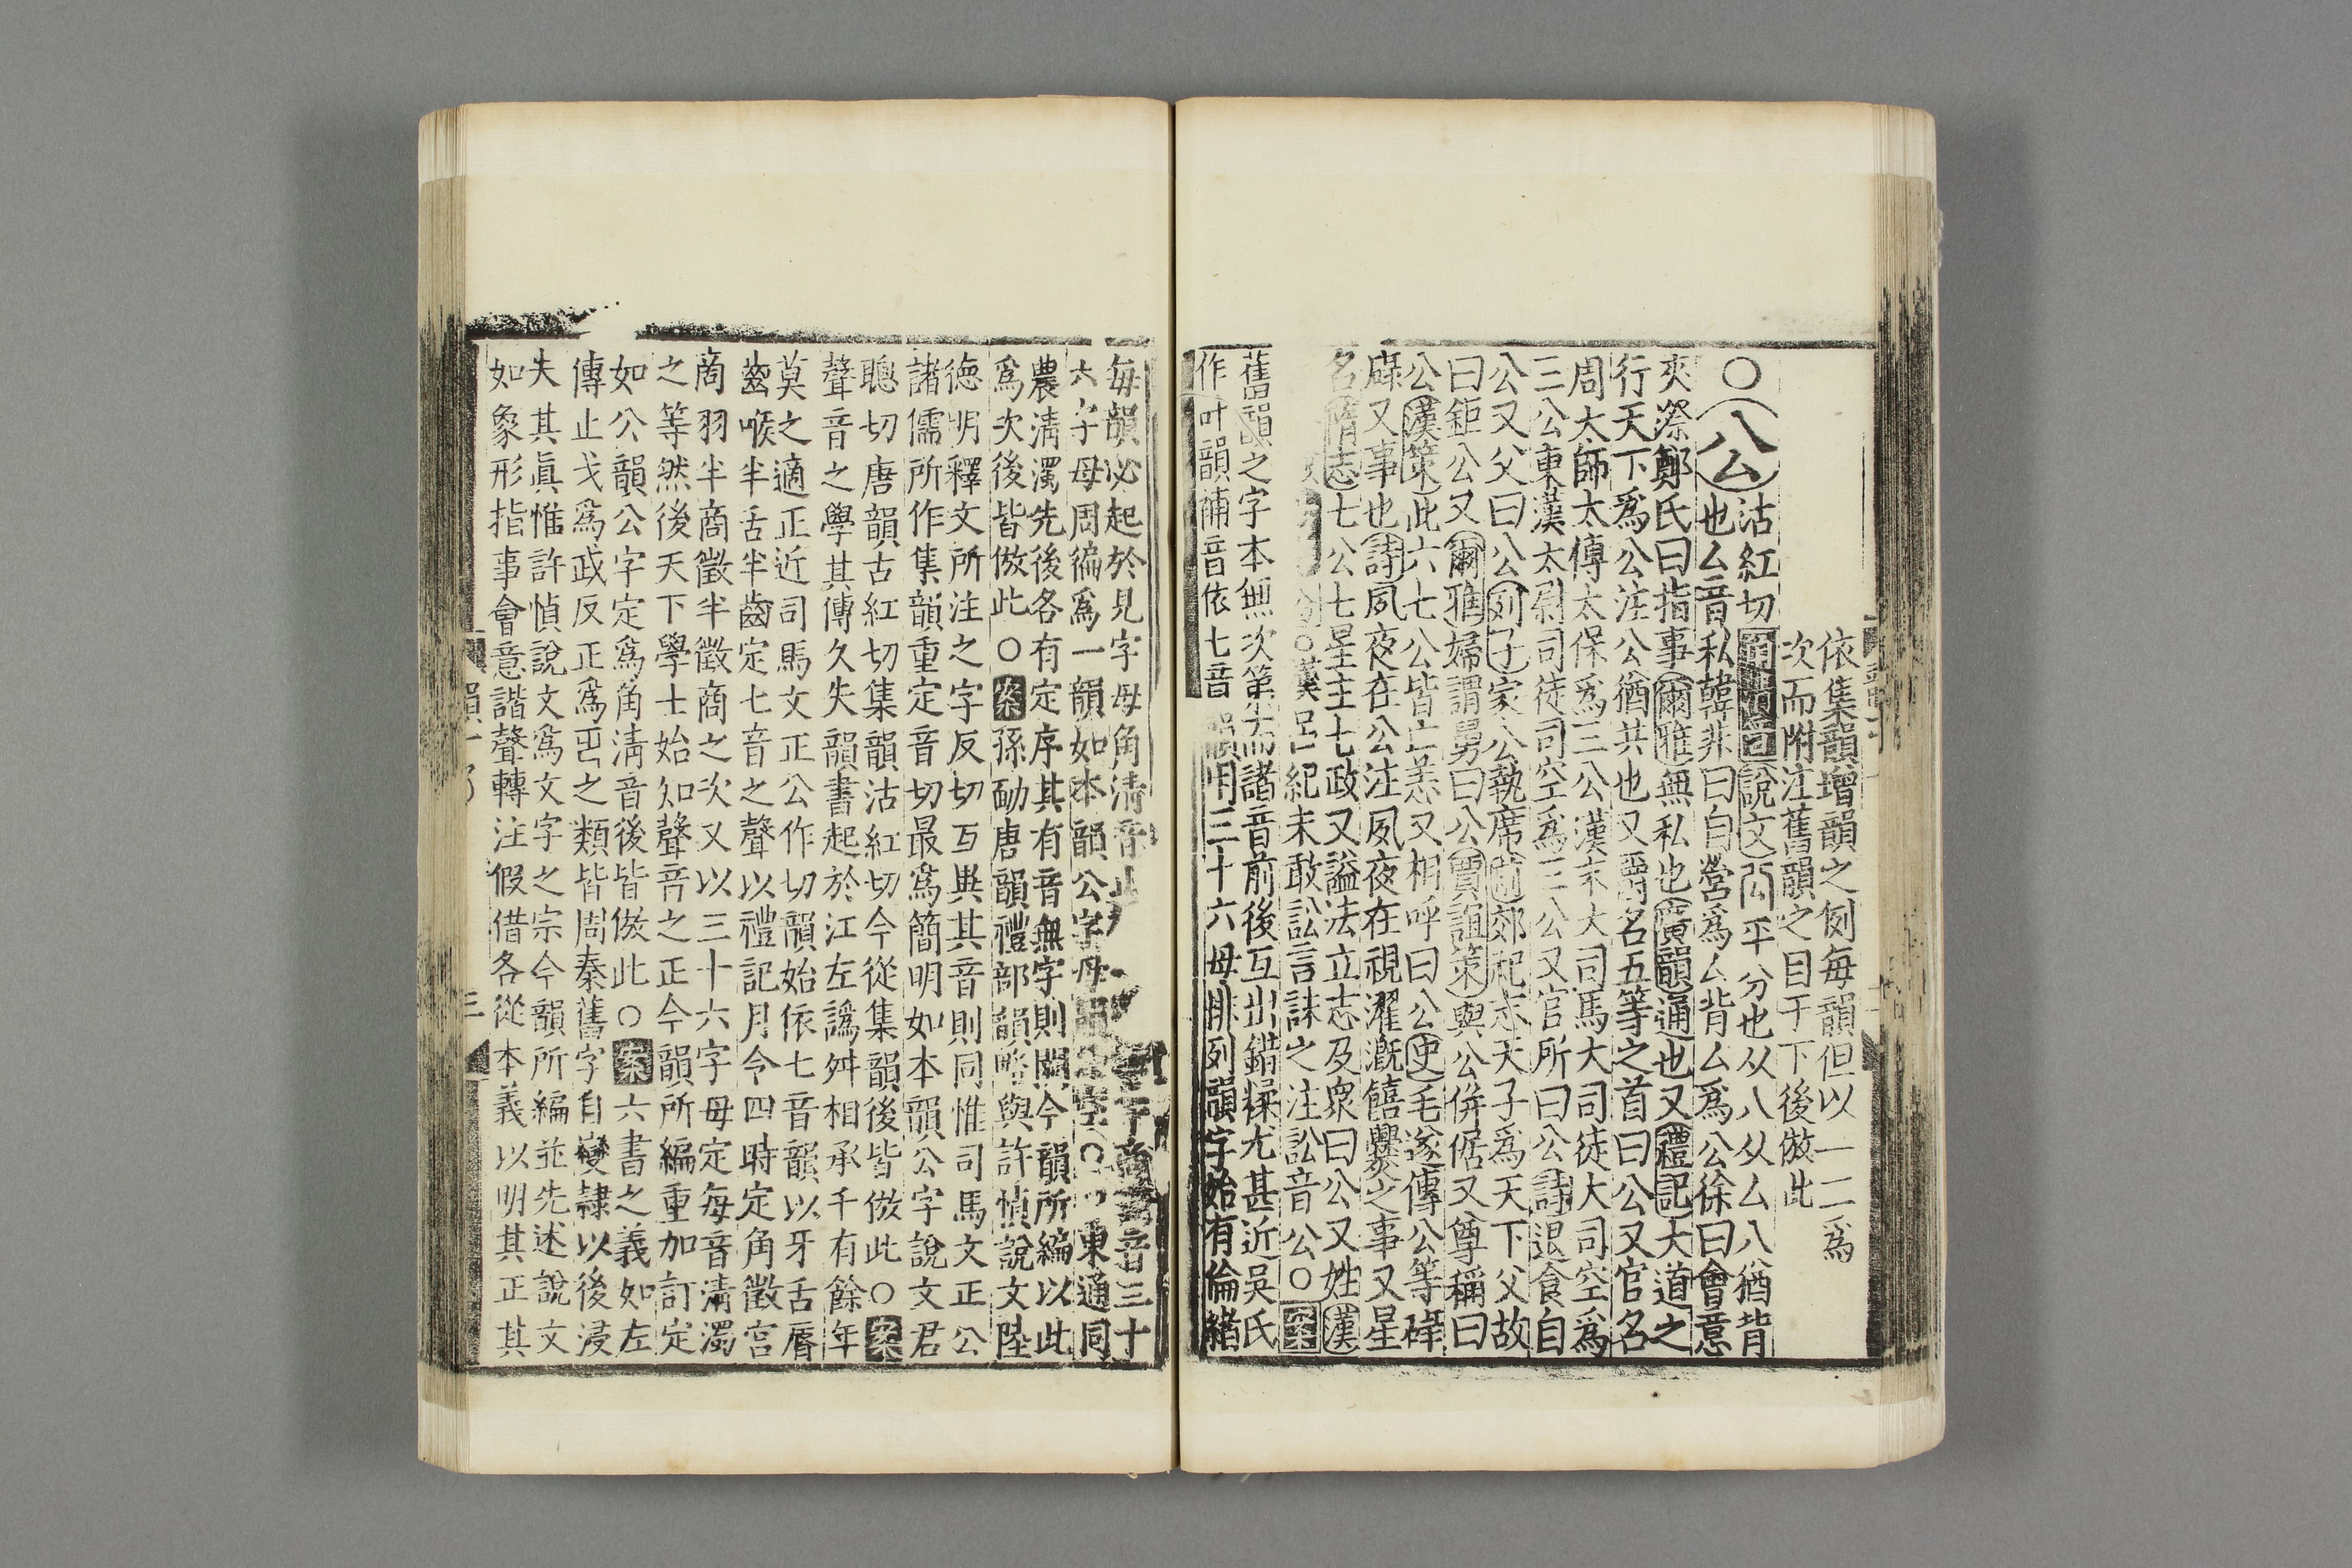 依集韻增韻之例每韻但以一二爲
次而附注舊韻之目于下後倣此
○公沽紅切角清音說文公平分也从八从厶八猶背
也厶音私韓非曰自營爲厶背厶爲公徐曰會意
夾漈鄭氏曰指事爾雅無私也廣韻通也又禮記大道之
行天下爲公注公猶共也又爵名五等之首曰公又官名
周太師太傅太保爲三公漢末大司馬大司徒大司空爲
三公東漢太尉司徒司空爲三公又官所曰公詩退食自
公又父曰公列子家公執席郊祀志天子爲天下父故
曰鉅公又爾雅婦謂舅曰公賈誼策與公倂倨又尊稱曰
公漢策此六七公皆亡恙又相呼曰公史毛遂傳公等碌
碌又事也詩夙夜在公注夙夜在視濯漑饎爨之事又星
名隋志七公七星主七政又謚法立志及衆曰公又姓漢
○漢呂紀未敢訟言誅之注訟音公○案
舊韻之字本無次第而諸音前後互出錯糅尤甚近吳氏
作叶韻補音依七音韻用三十六母排列韻字始有倫緒
每韻必起於見字母角清音止字半商徵音三十
六字母周徧爲一韻如本韻公字母韻空字東通同
農淸濁先後各有定序其有音無字則闕今韻所編以此
爲次後皆倣此○案孫愐唐韻禮部韻略與許愼說文陸
德明釋文所注之字反切互異其音則同惟司馬文正公
諸儒所作集韻重定音切最爲簡明如本韻公字說文君
聰切唐韻古紅切集韻沽紅切今從集韻後皆倣此○案
聲音之學其傳久失韻書起於江左譌舛相承千有餘年
莫之適正近司馬文正公作切韻始依七音韻以牙舌脣
齒喉半舌半齒定七音之聲以禮記月令四時定角徵宮
商羽半商徵半徵商之次又以三十六字母定每音清濁
之等然後天下學士始知聲音之正今韻所編重加訂定
如公韻公字定爲角淸音後皆倣此○案六書之義如左
傳止戈爲武反正爲乏之類皆周秦舊字自變隸以後浸
失其眞惟許愼說文爲文字之宗今韻所編並先述說文
如象形指事會意諧聲轉注假借各從本義以明其正其